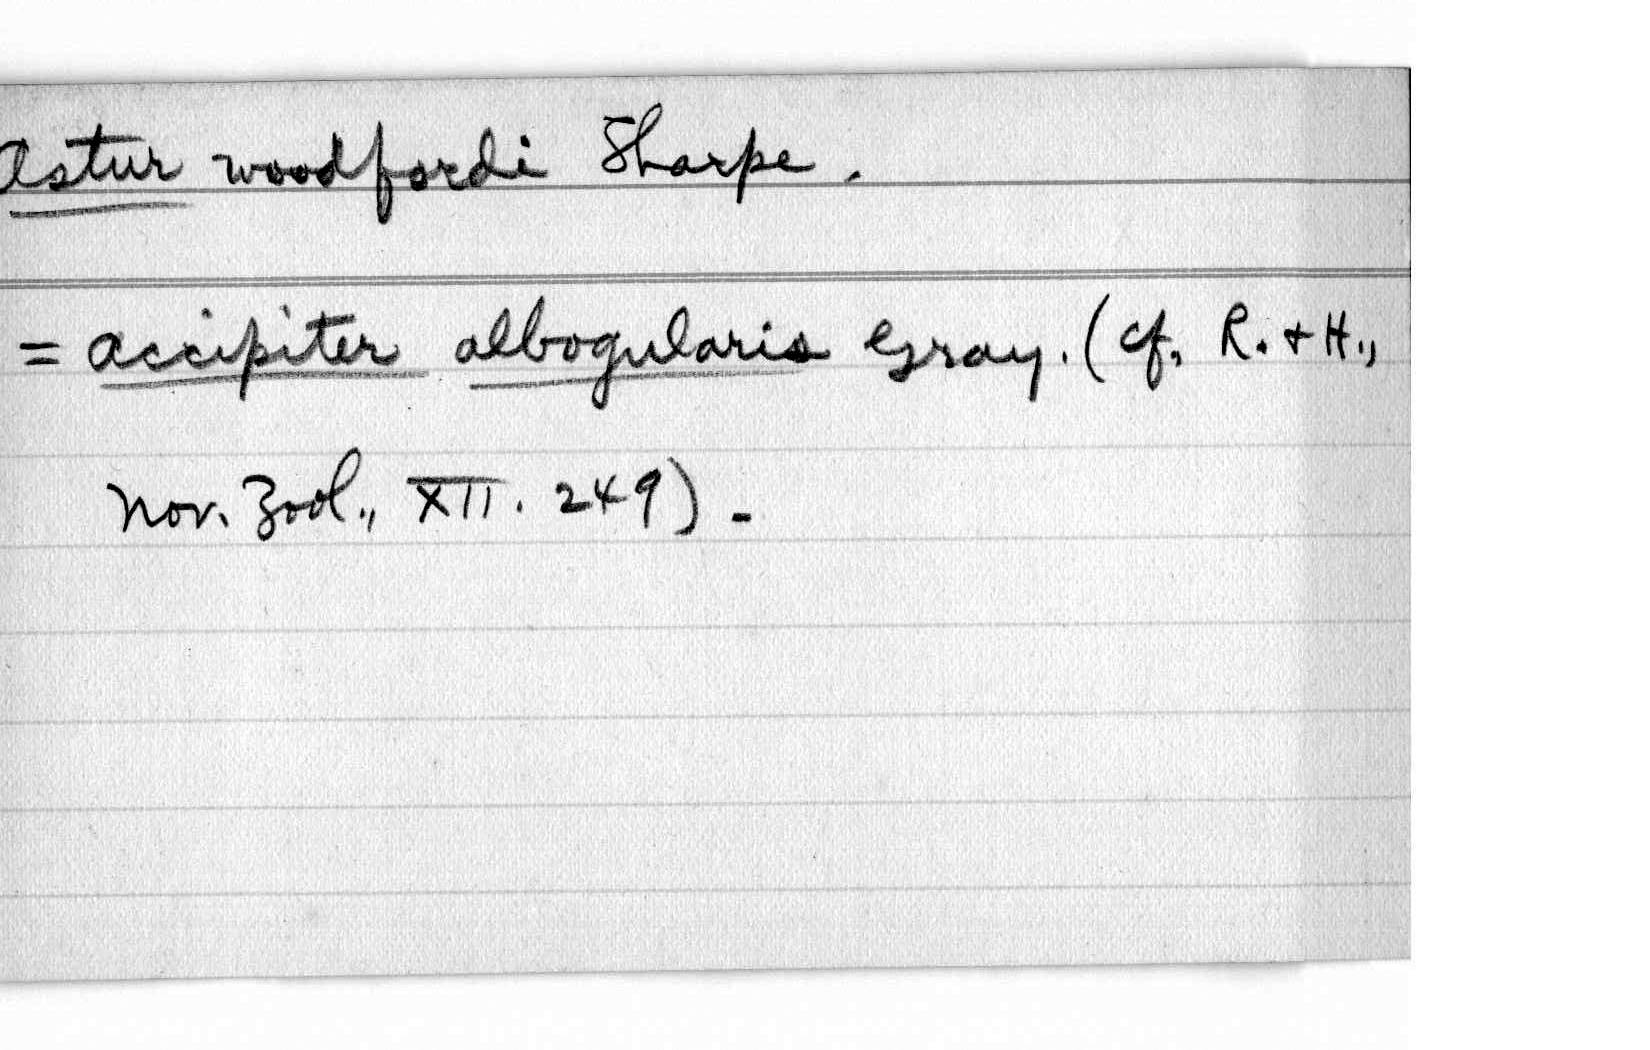 Astur woodfordi Sharpe.
= Accipiter albogularis Gray. (cf. R. + H.,
Nov. Zool., XII. 249).